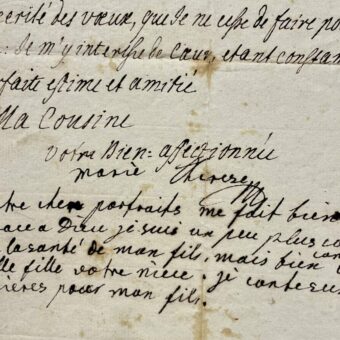 cerité des vœux, que Je ne cesse de faire po
: Je m'y interesse de Cœur, etant constan
faite estime et amitié
Ma Cousine
votre Bien = affectionnée
marie therese
tre cher portraits me fait bien
grace a Dieu je suis un peu plus co
la santé de mon fils. mais bien con
lle fille votre niece. je conte sur
ières pour mon fils.